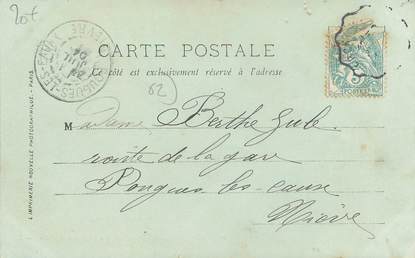 20f
CARTE POSTALE
Ce côté est exclusivement réservé à l'adresse
62
Madame Berthe Gub.
route de la gare
Pougues les eaux
Nièvre
L'IMPRIMERIE NOUVELLE PHOTOGRAPHIQUE - PARIS
POUGUES-LES-EAUX
NIÈVRE
POSTES
5